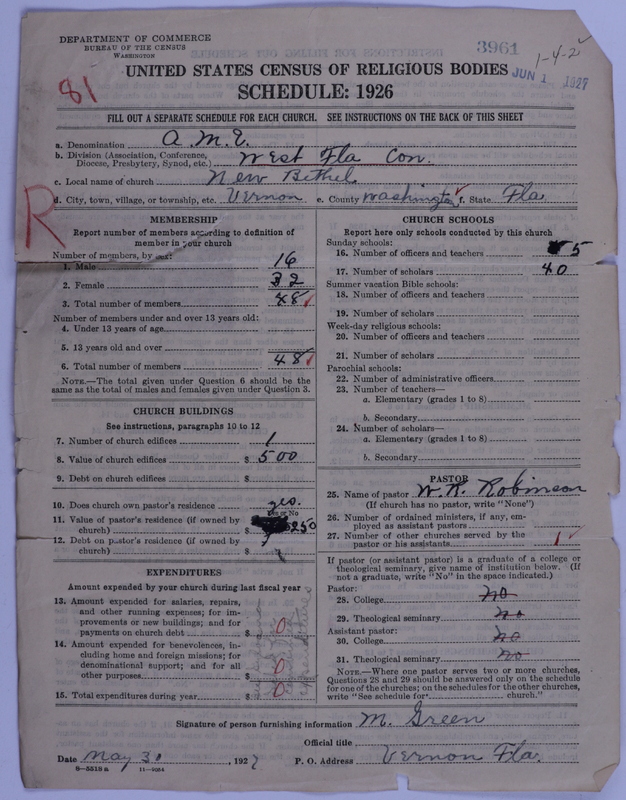 DEPARTMENT OF COMMERCE
BUREAU OF THE CENSUS
WASHINGTON
3961
1-4-2
JUN 1 1927
81
UNITED STATES CENSUS OF RELIGIOUS BODIES
SCHEDULE: 1926
FILL OUT A SEPARATE SCHEDULE FOR EACH CHURCH. SEE INSTRUCTIONS ON THE BACK OF THIS SHEET
a. Denomination A.M.E.
b. Division (Association, Conference, Diocese, Presbytery, Synod, etc.) West Fla Con.
c. Local name of church New Bethel
d. City, town, village, or township, etc. Vernon e. County Washington f. State Fla
R
MEMBERSHIP
Report number of members according to definition of
member in your church
Number of members, by sex:
1. Male 16
2. Female 32
3. Total number of members 48
Number of members under and over 13 years old:
4. Under 13 years of age
5. 13 years old and over
6. Total number of members 48
NOTE.—The total given under Question 6 should be the
same as the total of males and females given under Question 3.
CHURCH BUILDINGS
See instructions, paragraphs 10 to 12
7. Number of church edifices 1
8. Value of church edifices $ 500
9. Debt on church edifices $
10. Does church own pastor's residence yes.
Yes or No
11. Value of pastor's residence (if owned by
church) $ 250
12. Debt on pastor's residence (if owned by
church) $
EXPENDITURES
Amount expended by your church during last fiscal year
13. Amount expended for salaries, repairs,
and other running expenses; for im-
provements or new buildings; and for
payments on church debt $ 0
14. Amount expended for benevolences, in-
cluding home and foreign missions; for
denominational support; and for all
other purposes $ 0
15. Total expenditures during year $ 0
CHURCH SCHOOLS
Report here only schools conducted by this church
Sunday schools:
16. Number of officers and teachers 5
17. Number of scholars 40
Summer vacation Bible schools:
18. Number of officers and teachers
19. Number of scholars
Week-day religious schools:
20. Number of officers and teachers
21. Number of scholars
Parochial schools:
22. Number of administrative officers
23. Number of teachers—
a. Elementary (grades 1 to 8)
b. Secondary
24. Number of scholars—
a. Elementary (grades 1 to 8)
b. Secondary
PASTOR
25. Name of pastor W. R. Robinson
(If church has no pastor, write "None")
26. Number of ordained ministers, if any, em-
ployed as assistant pastors
27. Number of other churches served by the
pastor or his assistants 1
If pastor (or assistant pastor) is a graduate of a college or
theological seminary, give name of institution below. (If
not a graduate, write "No" in the space indicated.)
Pastor:
28. College no
29. Theological seminary no
Assistant pastor:
30. College no
31. Theological seminary no
NOTE.—Where one pastor serves two or more churches,
Questions 28 and 29 should be answered only on the schedule
for one of the churches; on the schedules for the other churches,
write "See schedule for church."
Signature of person furnishing information M. Green
Official title
Date May 31, 1927 P. O. Address Vernon Fla.
8—5518a 11—9054